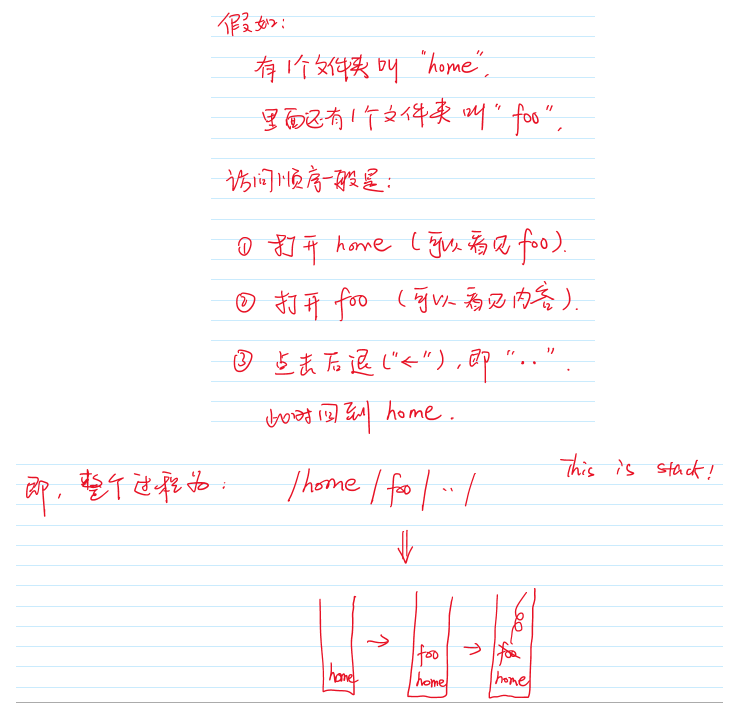 假如:
有1个文件夹叫 "home",
里面还有1个文件夹叫 "foo",
访问顺序一般是:
① 打开 home (可以看见foo).
② 打开 foo (可以看见内容).
③ 点击后退("←"), 即 "..".
此时回到 home.
This is stack!
即, 整个过程为: /home/foo/../
⇓
home → foo → foo
home home